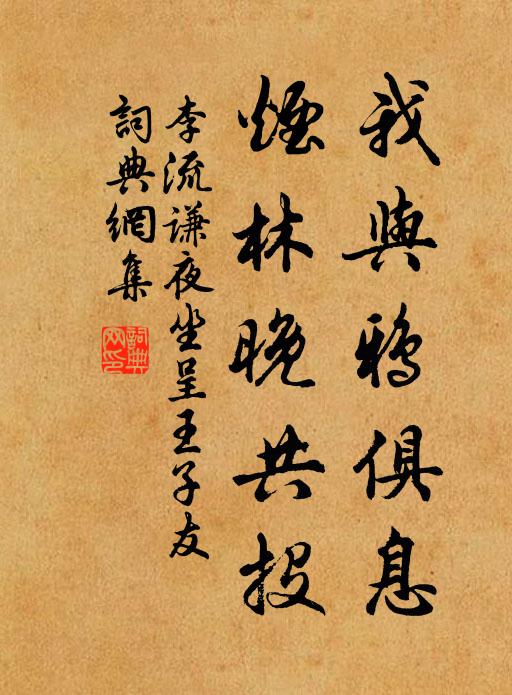 我與鴉俱息
煙林晚共投
李流謙夜坐呈王子友
詞典網集
詞典
网印